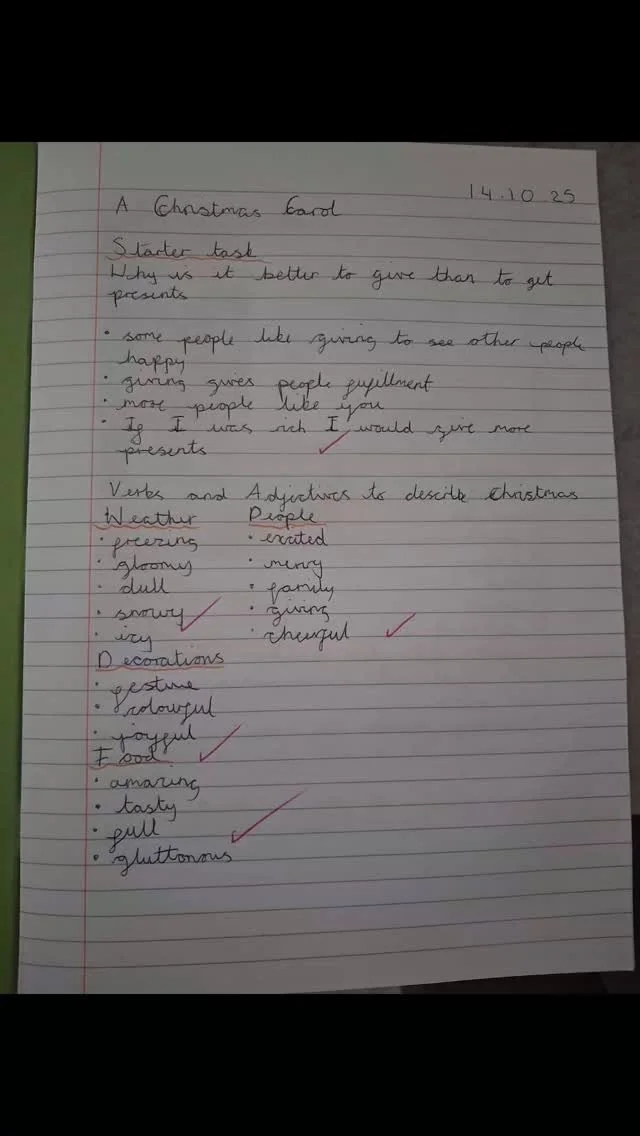 14.10.25
A Christmas Carol
Starter task
Why is it better to give than to get
presents
• some people like giving to see other people
happy
• giving gives people fufillment
• more people like you
• If I was rich I would give more
presents
Verbs and Adjectives to describe Christmas
Weather People
• freezing • excited
• gloomy • merry
• dull • family
• snowy • giving
• icy • cheerful
Decorations
• festive
• colourful
• joyful
Food
• amazing
• tasty
• full
• gluttonous